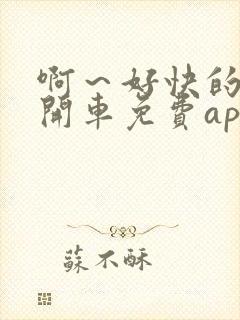 啊～好快的
開車免費ap
蘇不酥